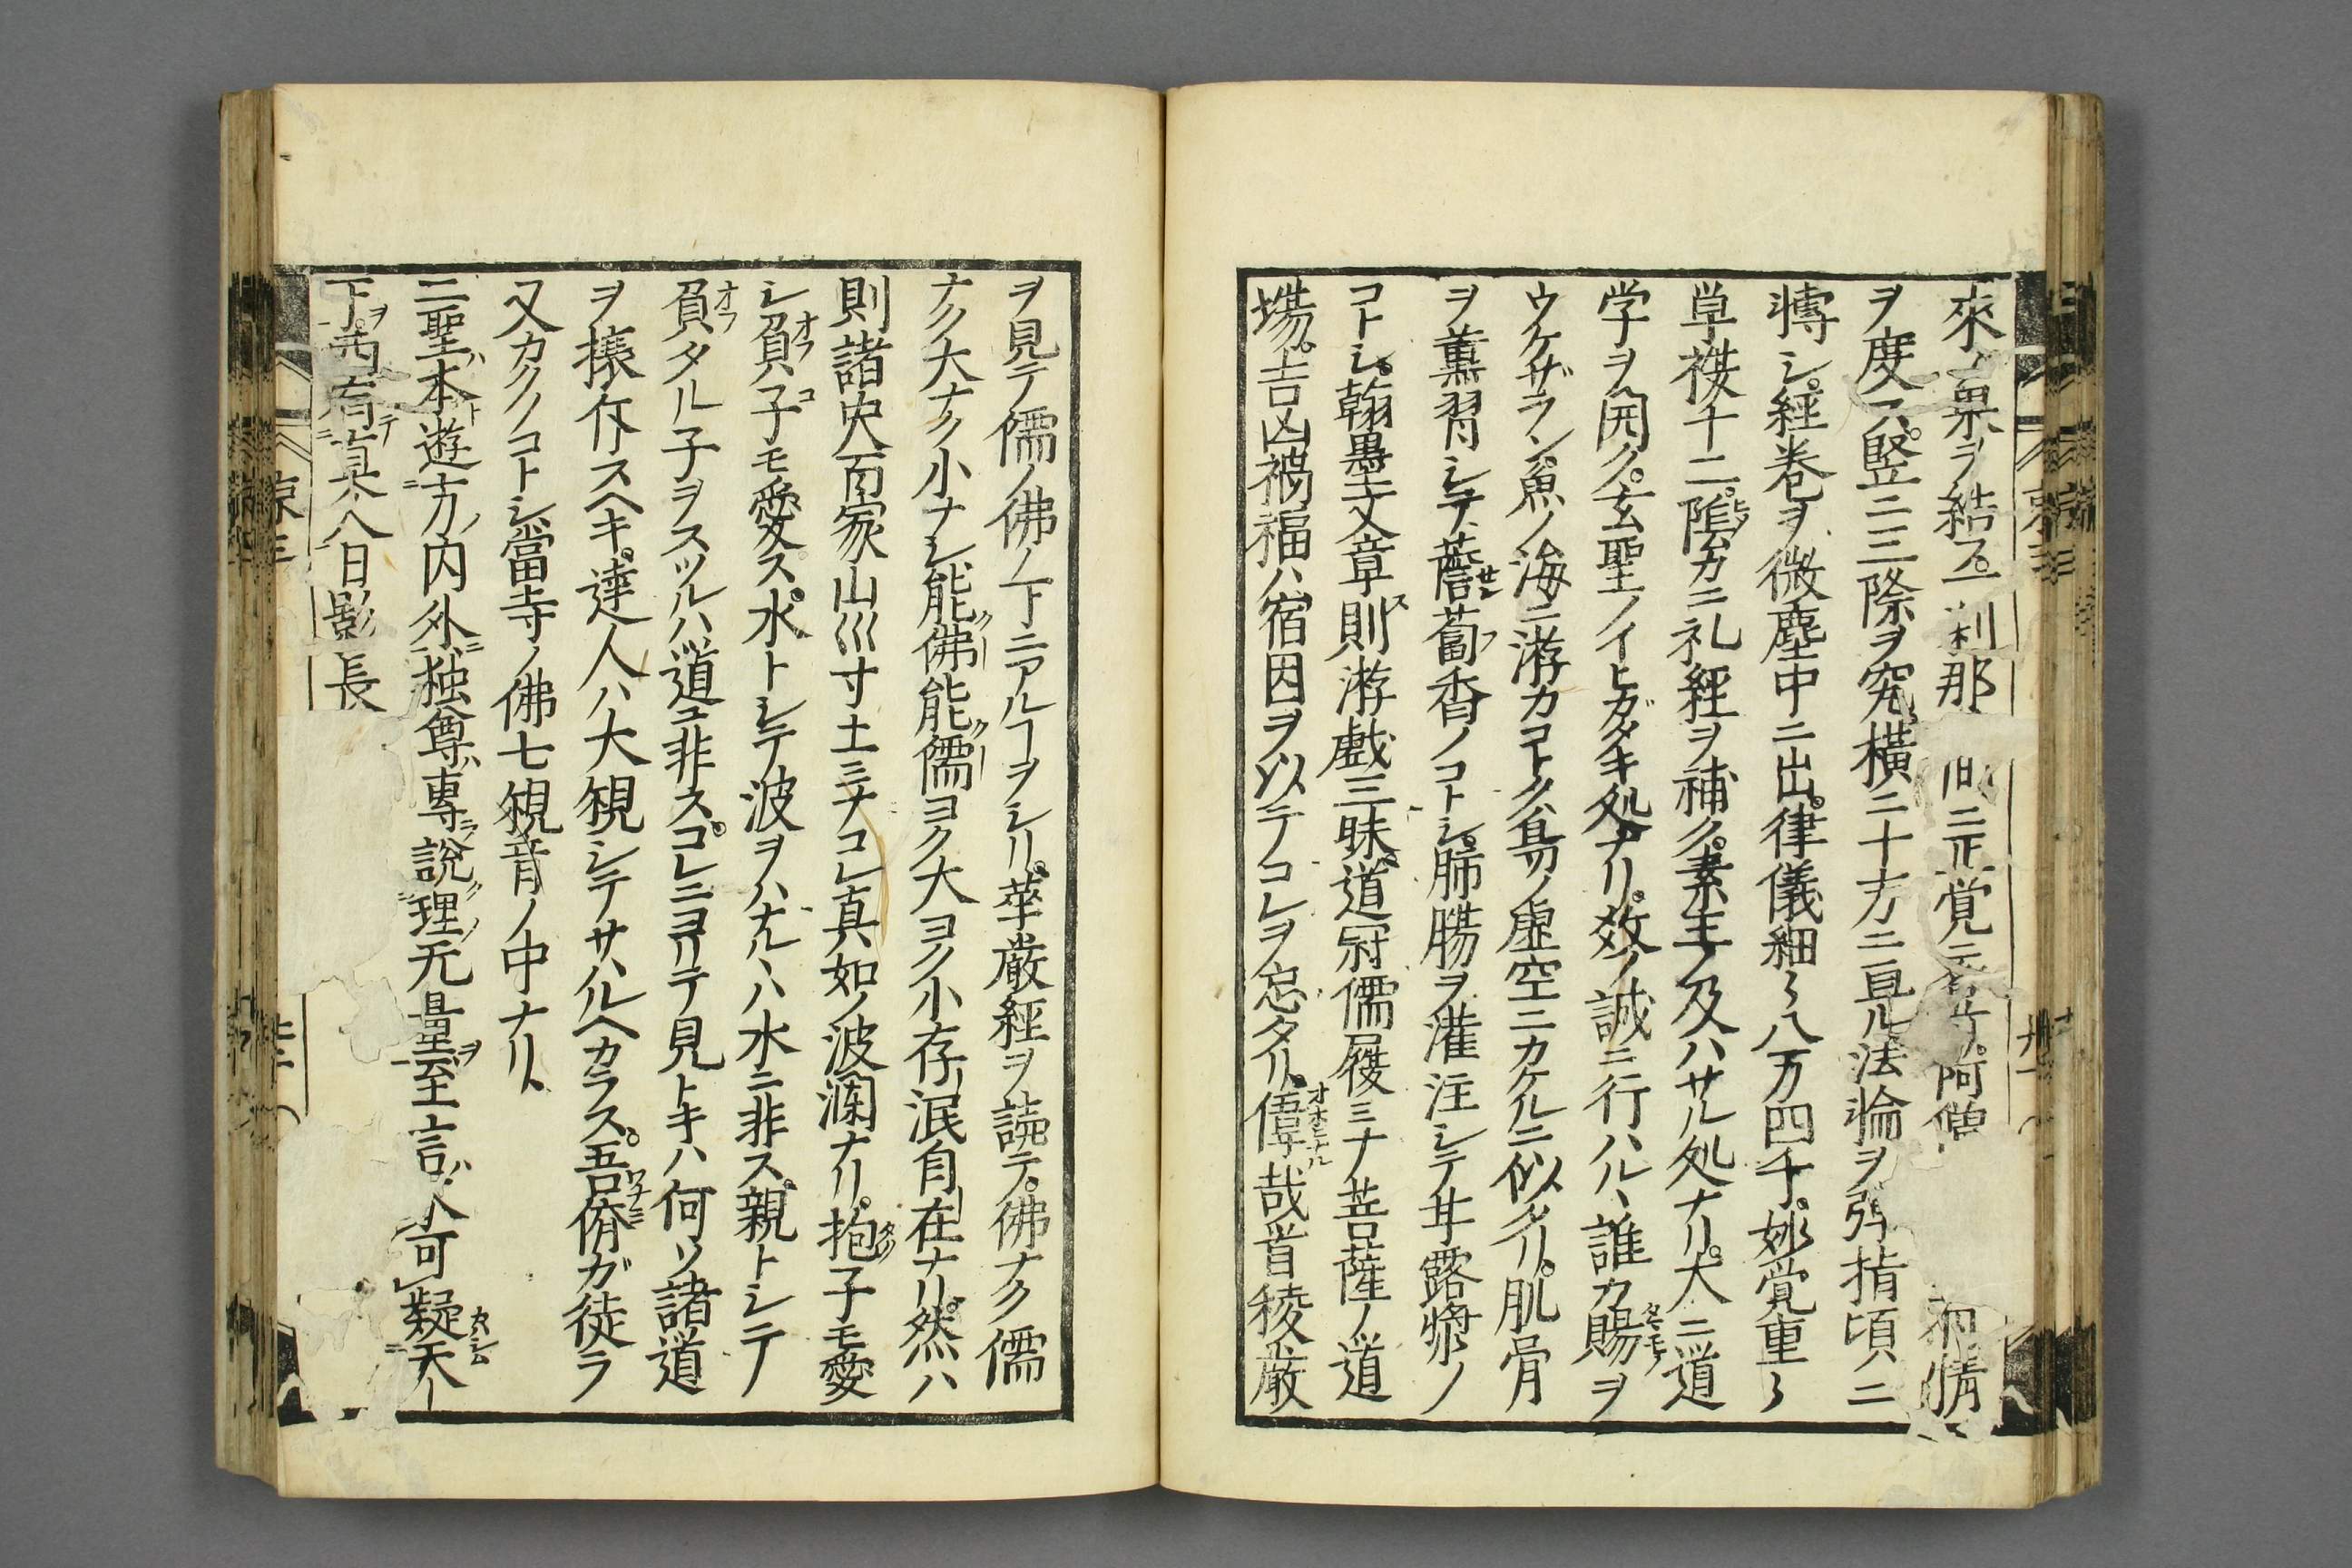 來ノ果ヲ結フ。一刹那 間ニ正覚 阿僧 有情
ヲ度ス。竪ニ三際ヲ究、横ニ十方ニ亘ル。法輪ヲ弾指頃ニ
轉シ。経巻ヲ微塵中ニ出。律儀細々八万四千。妙覚重々
単複十二。陰カニ礼経ヲ補ク。素王ノ及ハサル処ナリ。大ニ道
学ヲ開ク。玄聖ノイヒガタキ処ナリ。教ノ誠ニ行ハル、誰カ賜ヲ
ウケザラン。魚ノ海ニ游カコトク。鳥ノ虚空ニカケルニ似タリ。肌骨
ヲ薫習シテ、薝蔔香ノコトシ。肺腸ヲ灌注シテ甘露漿ノ
コトシ。翰墨文章則游戯三昧、道冠儒履ミナ菩薩ノ道
場。吉凶禍福ハ宿因ヲ以テコレヲ忘タリ。偉哉首稜厳
ヲ見テ儒ノ佛ノ下ニアルヿヲシリ。華厳経ヲ読テ。佛ナク儒
ナク大ナク小ナシ能佛能儒ヨク大ヨク小存泯自在ナリ。然ハ
則諸史百家山巛寸土ミナコレ真如ノ波瀾ナリ。抱子モ愛
シ負子モ愛ス。水トシテ波ヲハナルヽハ水ニ非ス。親トシテ
負タル子ヲスツルハ道ニ非ス。コレニヨリテ見トキハ何ソ諸道
ヲ擯斥スヘキ。達人ハ大観シテサハルヘカラス。吾儕ガ徒ラ
又カクノコトシ當寺ノ佛七観音ノ中ナリ、
二聖本遊方内外独尊専説理无量至言 可疑天
下西有真人日影長